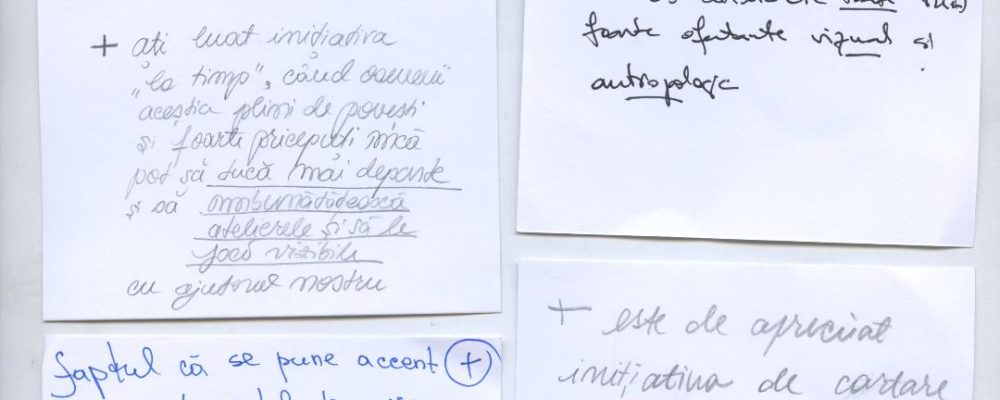 + ați luat inițiativa
"la timp", când oamenii
aceștia plini de povești
și foarte pricepuți încă
pot să ducă mai departe
și să îmbunătățească
atelierele și să le
facă vizibile
cu ajutorul nostru
foarte ofertante vizual și
antropologic
faptul că se pune accent +
+ este de apreciat
inițiativa de cartare